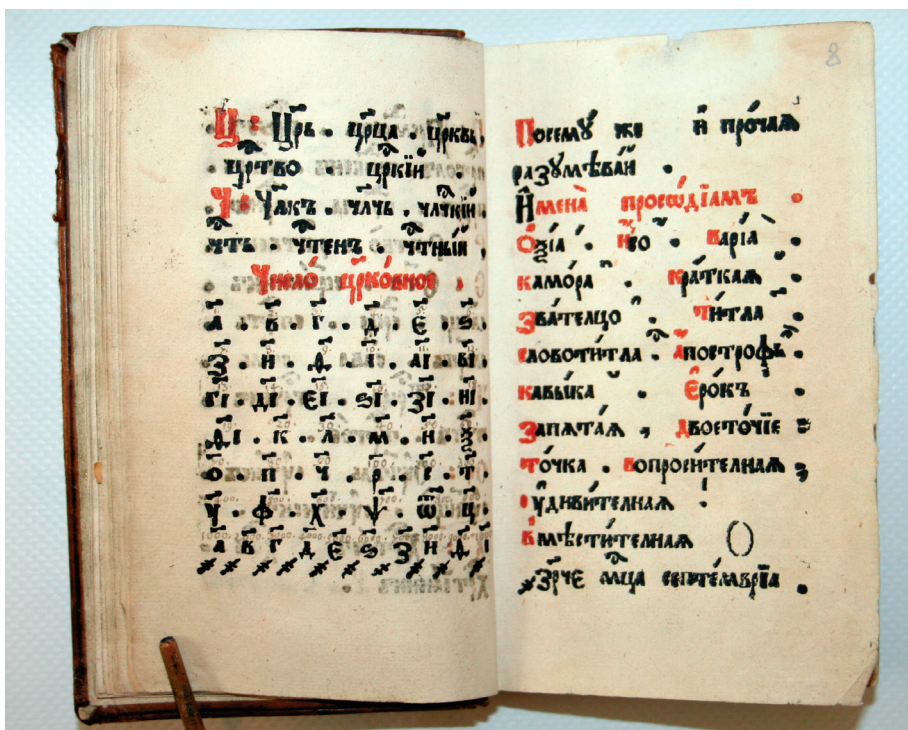 Ц: Цр҃ь . цр҃ца . цр҃квь ,
цр҃тво . цр҃кїй .
Ч: Чл҃къ . чл҃чь , чл҃чкїй .
чть . чтенъ . чтный
Число̀ цр҃ко́вное .
а҃ . в҃ . г҃ . д҃ . є҃ . ѕ҃ .
з҃ . и҃ . ѳ҃ . і҃ . а҃і . в҃і .
г҃і . д҃і . є҃і . ѕ҃і . з҃і . и҃і .
ѳ҃і . к҃ . л҃ . м҃ . н҃ . ѯ҃
о҃ . п҃ . ч҃ . р҃ . с҃ . т҃
у҃ . ф҃ . х҃ . ѱ҃ . ѿ҃ . ц҃ .
҂а ҂в ҂г ҂д ҂є ҂ѕ ҂з ҂и ҂ѳ ҂і
8
Посемꙋ́ же и҆ про́чаѧ
разꙋмѣ́вай .
И҆мена̀ просѡді́амъ .
О҆ѯі́а ́ . И҆́со ҆ . Варі́а ̀
камо́ра ̑ . кра́ткаѧ ̆ .
Зва́телцо ҆ . ти́тла ҃ .
словоти́тла . а҆постро́фь .
кавы́ка . є҆ро́къ .
Запѧта́ѧ , двосто́чїе :
то́чка . вопроси́телнаѧ ;
ᲂу҆диви́телнаѧ !
Вмѣсти́телнаѧ ()
҂зр҃че мц҃а септе́мврїа .